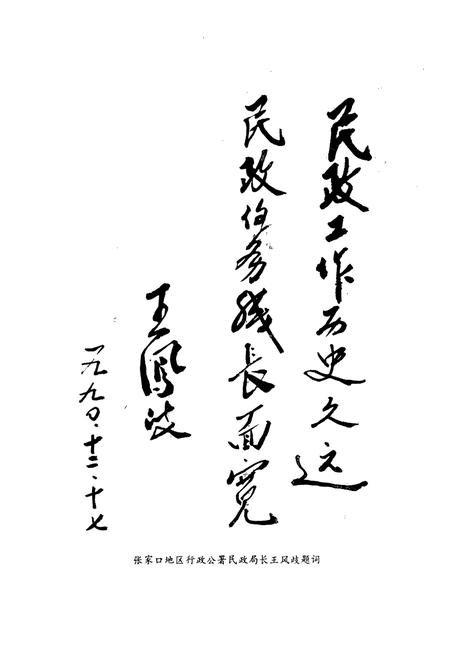 民政工作历史久远
民政任务线長面宽
王鳳岐
一九九〇·十二·十七
张家口地区行政公署民政局长王风歧题词